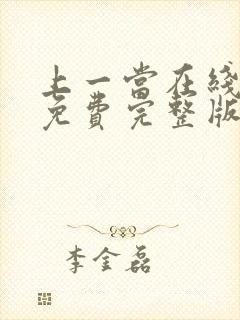 上一當在綫
免費完整版
李金磊